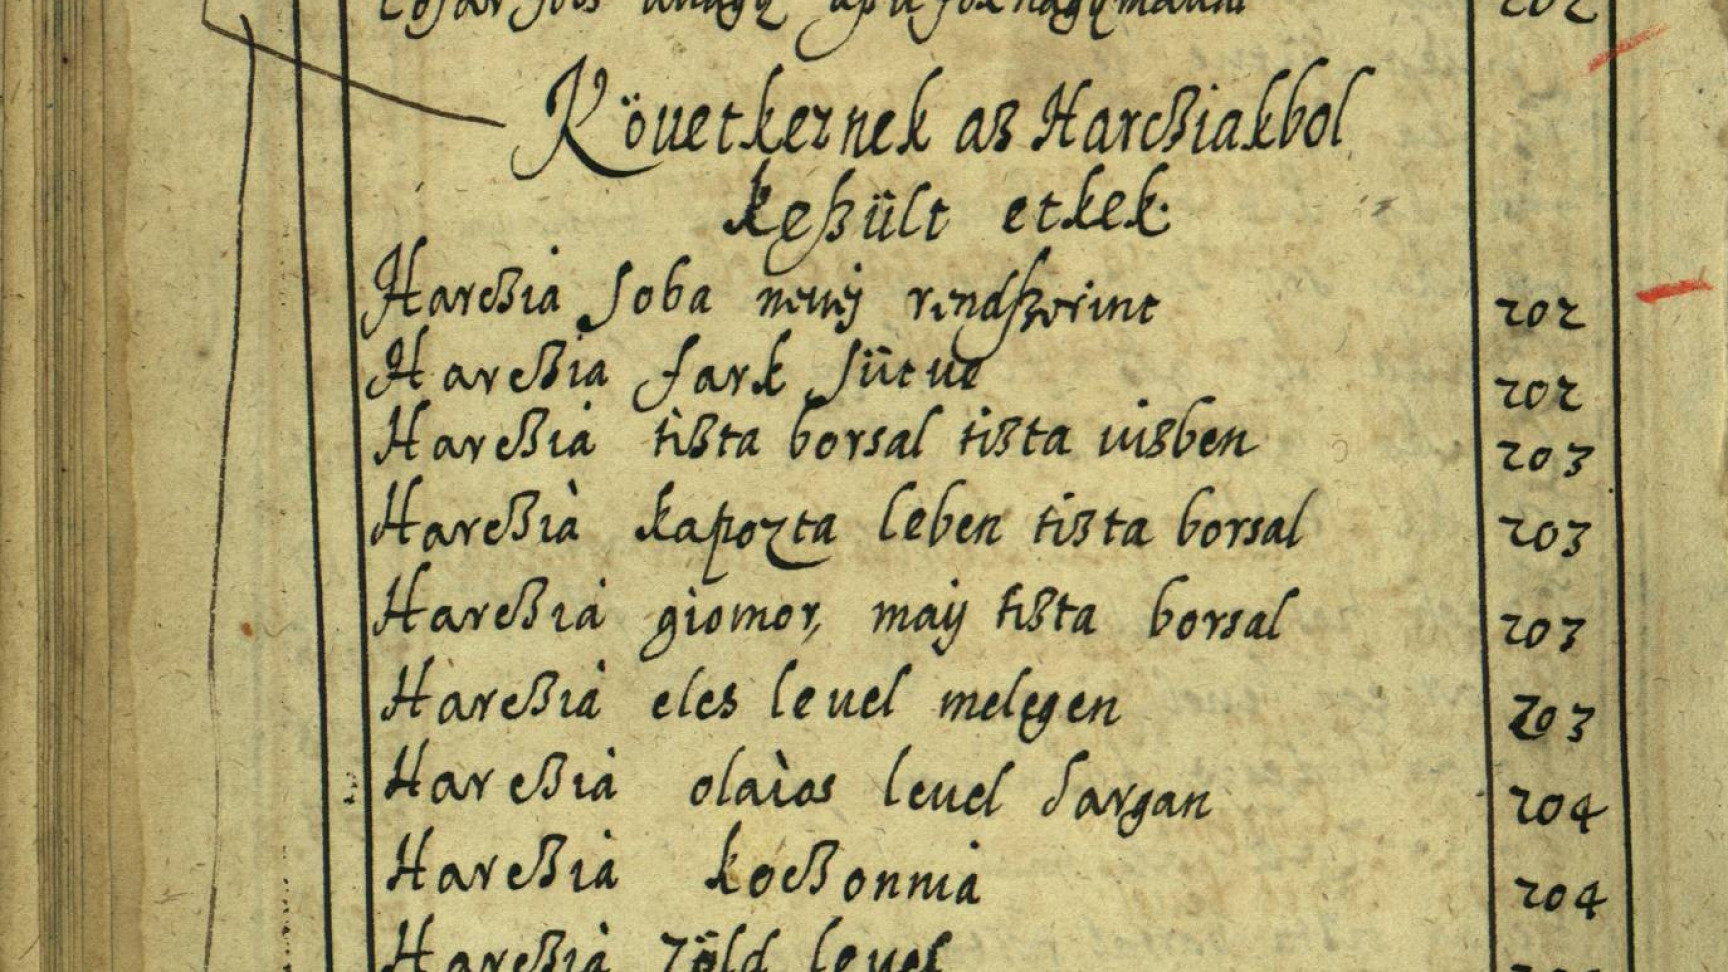 202
Köuetkeznek aß Harcßiakbol
keßült etkek:
Harcßia soba mint rendßerint 202
Harcßia fark sütue 202
Harcßia tißta borsal tißta uißben 203
Harcßia kapozta leben tißta borsal 203
Harcßia giomor, maij tißta borsal 203
Harcßia eles leuel melegen 203
Harcßia olaios leuel sargan 204
Harcßia kocßonnia 204
Harcßia zöld leuel